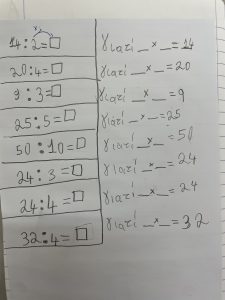 14:2=□ γιατί _×_=14
20:4=□ γιατί _×_=20
9:3=□ γιατί _×_=9
25:5=□ γιατί _×_=25
50:10=□ γιατί _×_=50
24:3=□ γιατί _×_=24
24:4=□ γιατί _×_=24
32:4=□ γιατί _×_=32